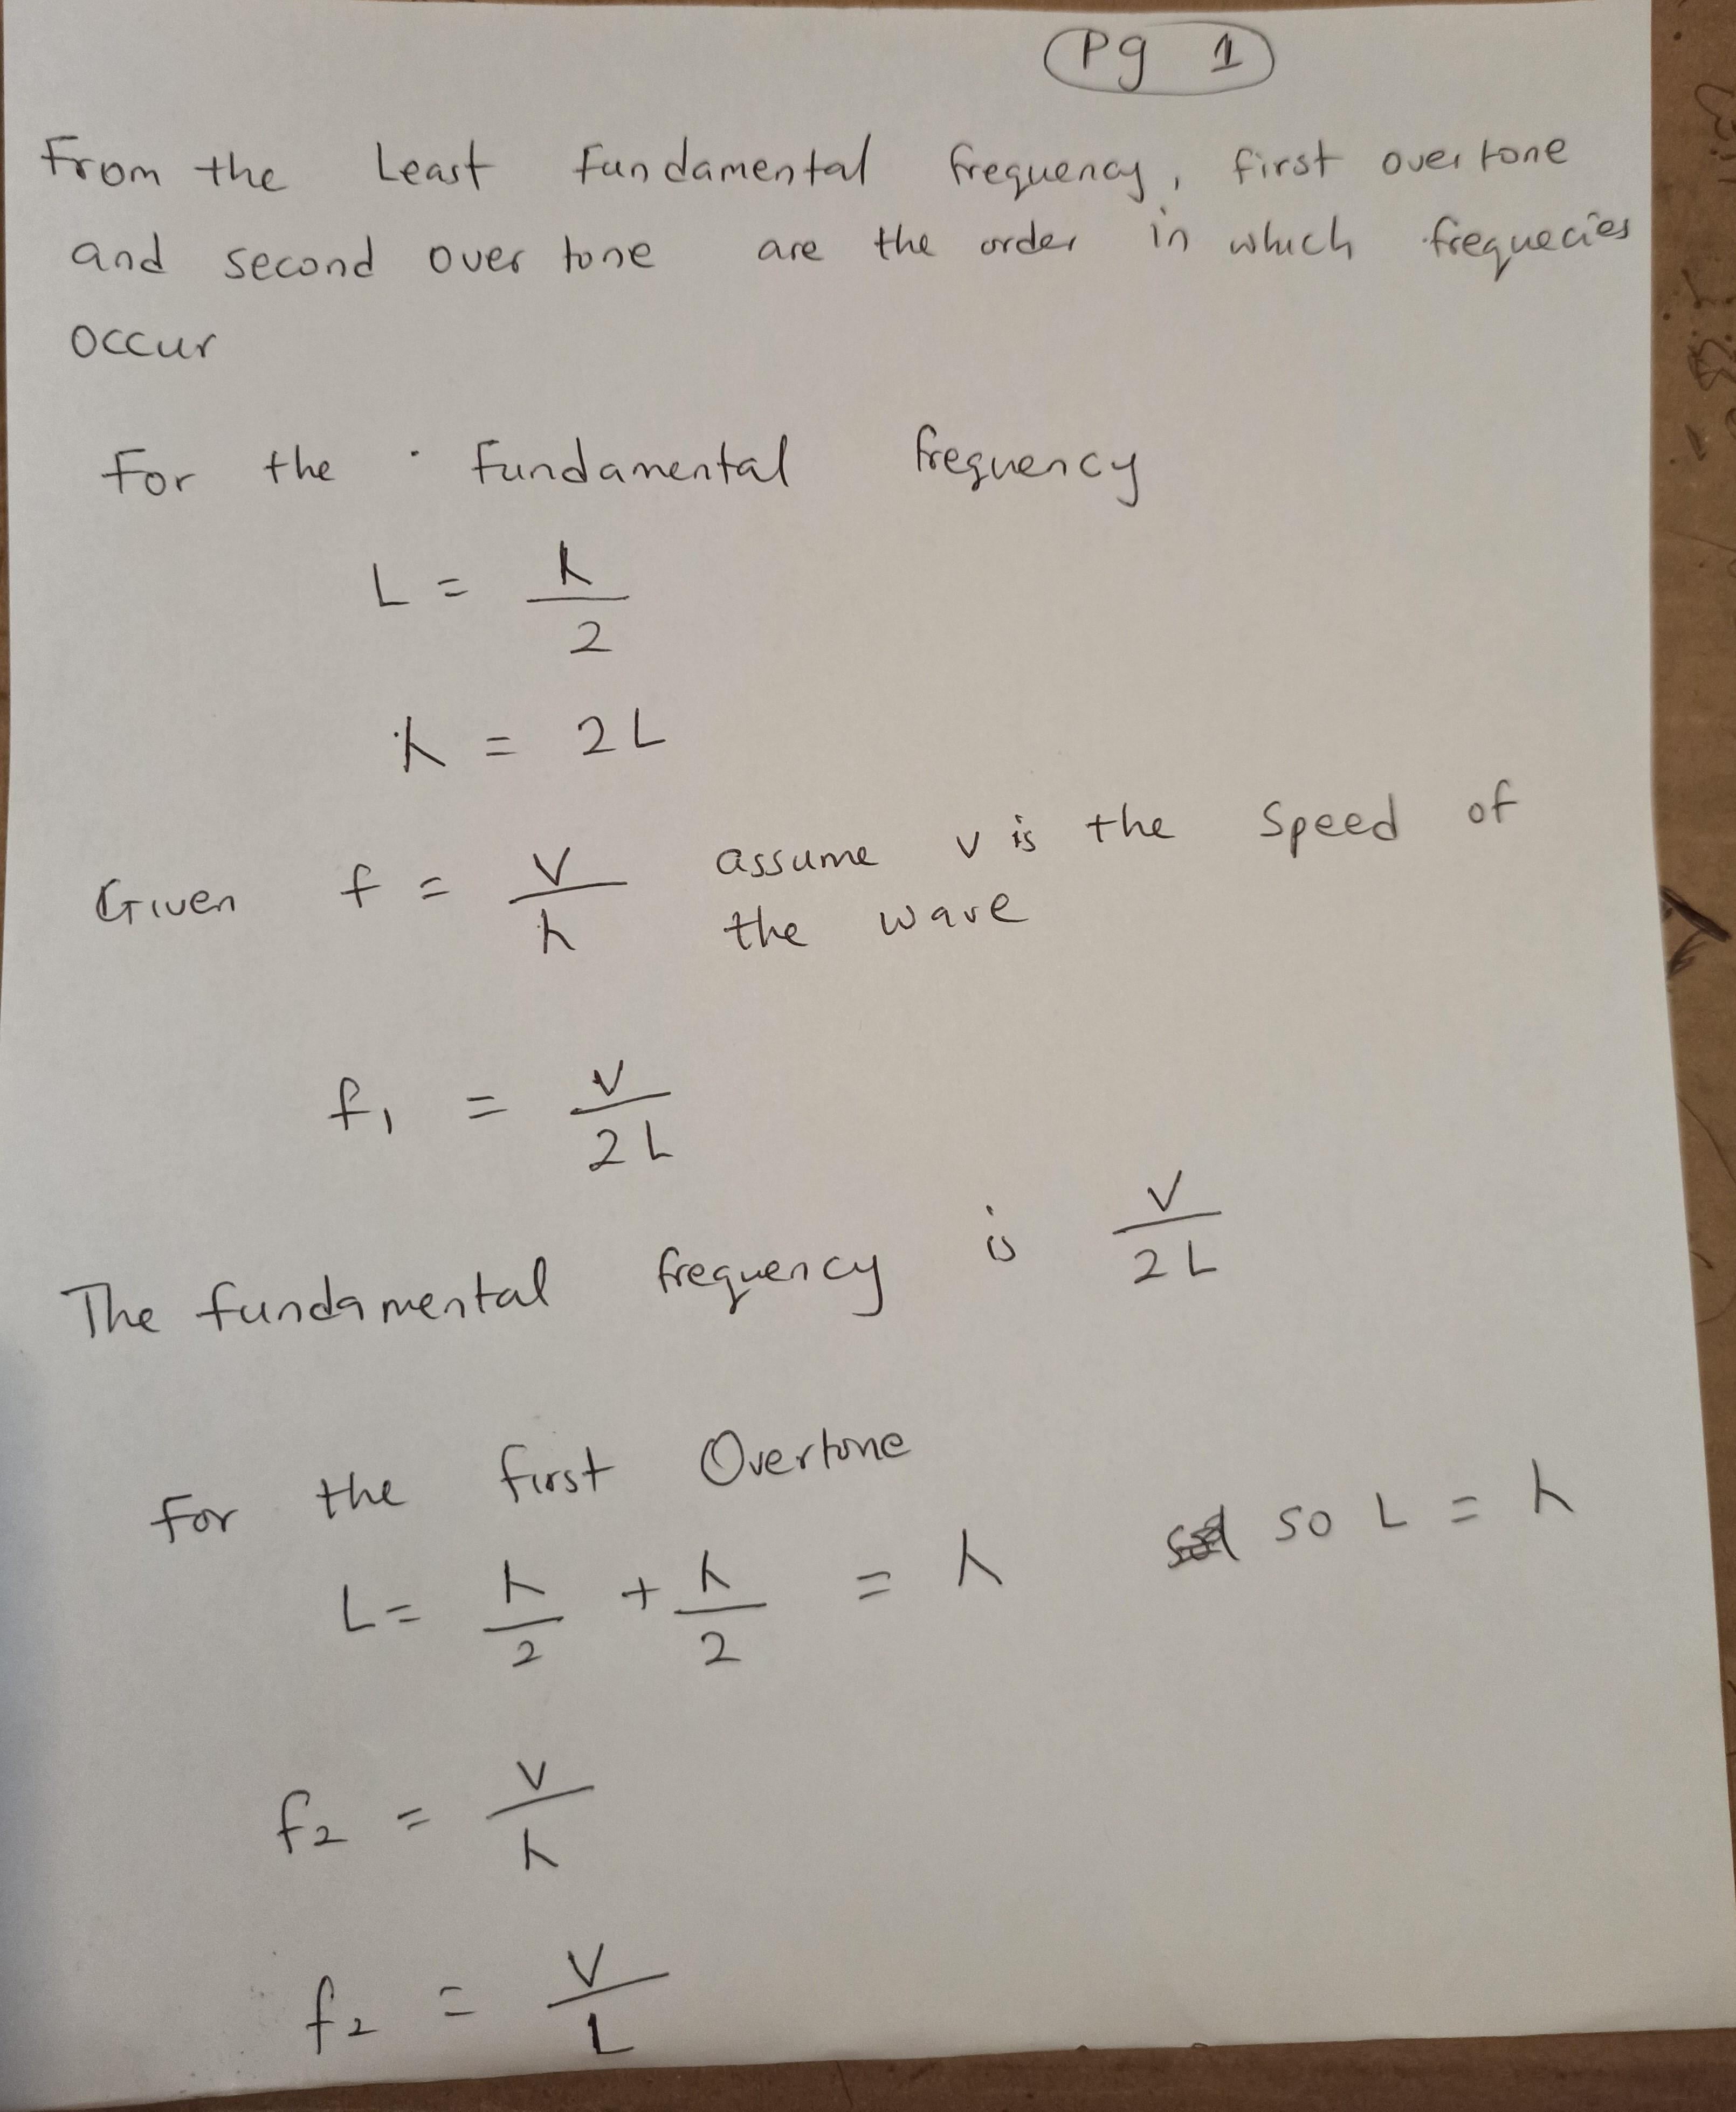 Pg 1
From the Least Fundamental frequency, first overtone
and second over tone are the order in which frequecies
occur
For the Fundamental frequency
L = λ/2
λ = 2L
Given f = v/λ assume v is the speed of
the wave
f₁ = v/2L
The fundamental frequency is v/2L
For the first Overtone
L = λ/2 + λ/2 = λ so L = λ
f₂ = v/λ
f₂ = v/L